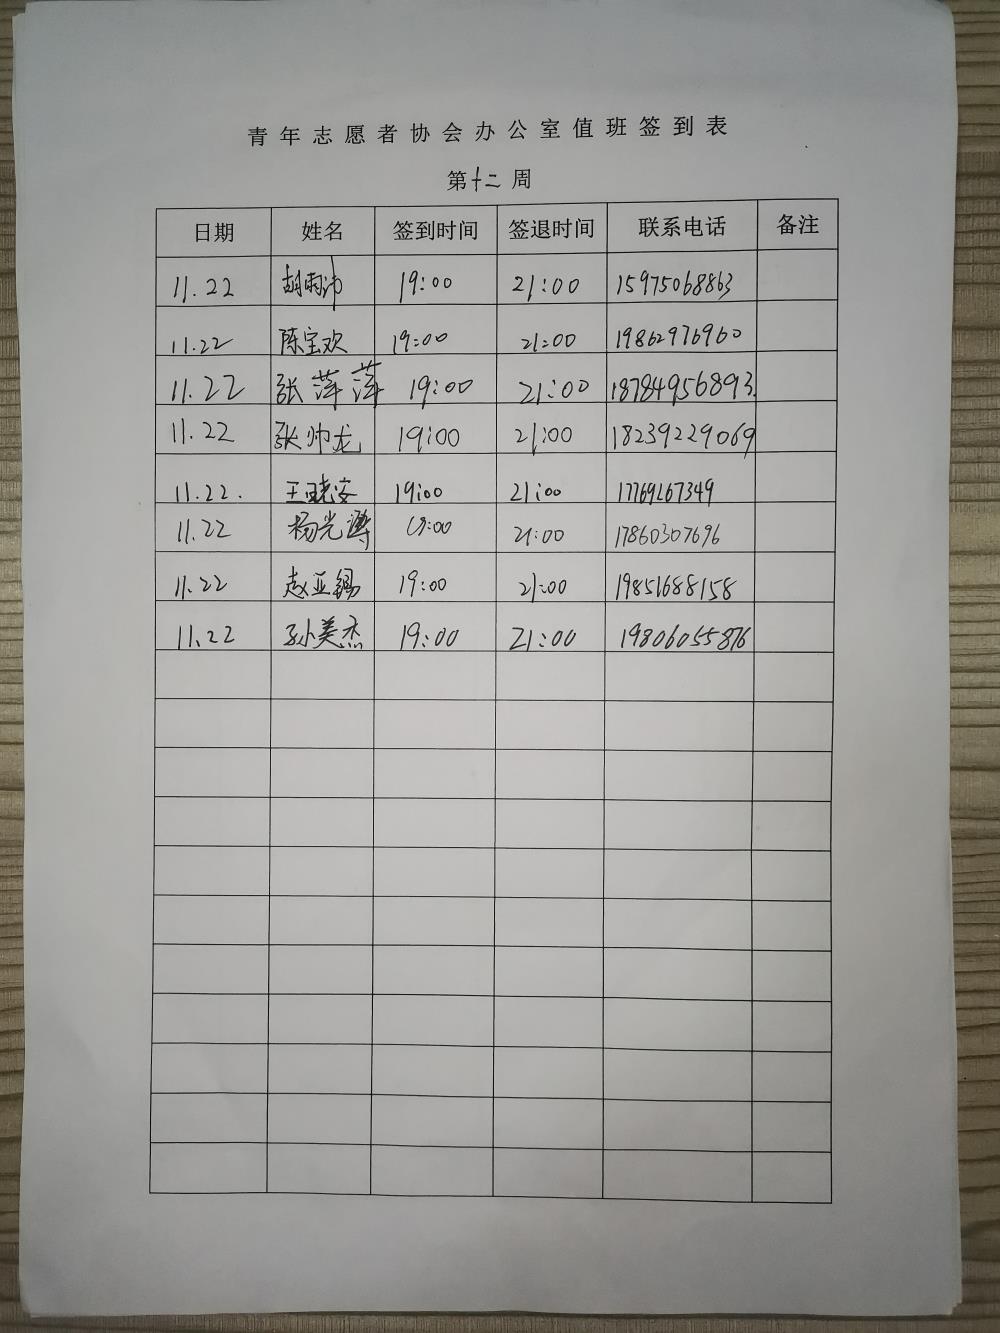 青年志愿者协会办公室值班签到表
第十二周
日期 姓名 签到时间 签退时间 联系电话 备注
11.22 胡雨沛 19:00 21:00 15975068863
11.22 陈宝欢 19:00 21:00 19862976960
11.22 张萍萍 19:00 21:00 18784956893
11.22 张帅龙 19:00 21:00 18239229069
11.22. 王晓安 19:00 21:00 17769267349
11.22 杨光 19:00 21:00 17860307696
11.22 赵亚锡 19:00 21:00 19851688158
11.22 孙美杰 19:00 21:00 19806055876